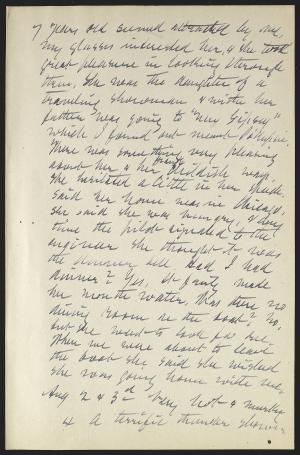 7 years old seemed attracted by me,
my glasses interested her, & she took
great pleasure in looking through
them. She was the daughter of a
traveling showman & with her
father was going to "Mis Gipsey"
which I found out meant Mississippi.
There was something very pleasing
about her & her childish ways.
She hesitated a little in her speech.
said her home was in Chicago,
she said she was hungry, & every
time the pilot signaled to the
engineer she thought it was
the dinner bell. Had I had
dinner? Yes, it fairly made
her mouth water. Was there no
dining room on the boat? No,
but she went to look for one.
When we were about to leave
the boat she said she wished
she was going home with me.
Aug 2 & 3d Very hot & murky
& a terrific thunder shower